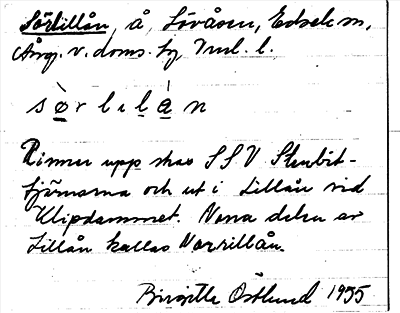 Sörlillån, å, Lövåsen, Edsele sn,
Ång. v. doms. by Tnsl. l.
sø̀rlɩlån
Rinner upp strax SSV Stenbit-
tjärnarna och ut i Lillån vid
Klipdammet. Norra delen av
Lillån kallas Norrlillån.
Birgitta Östlund 1955